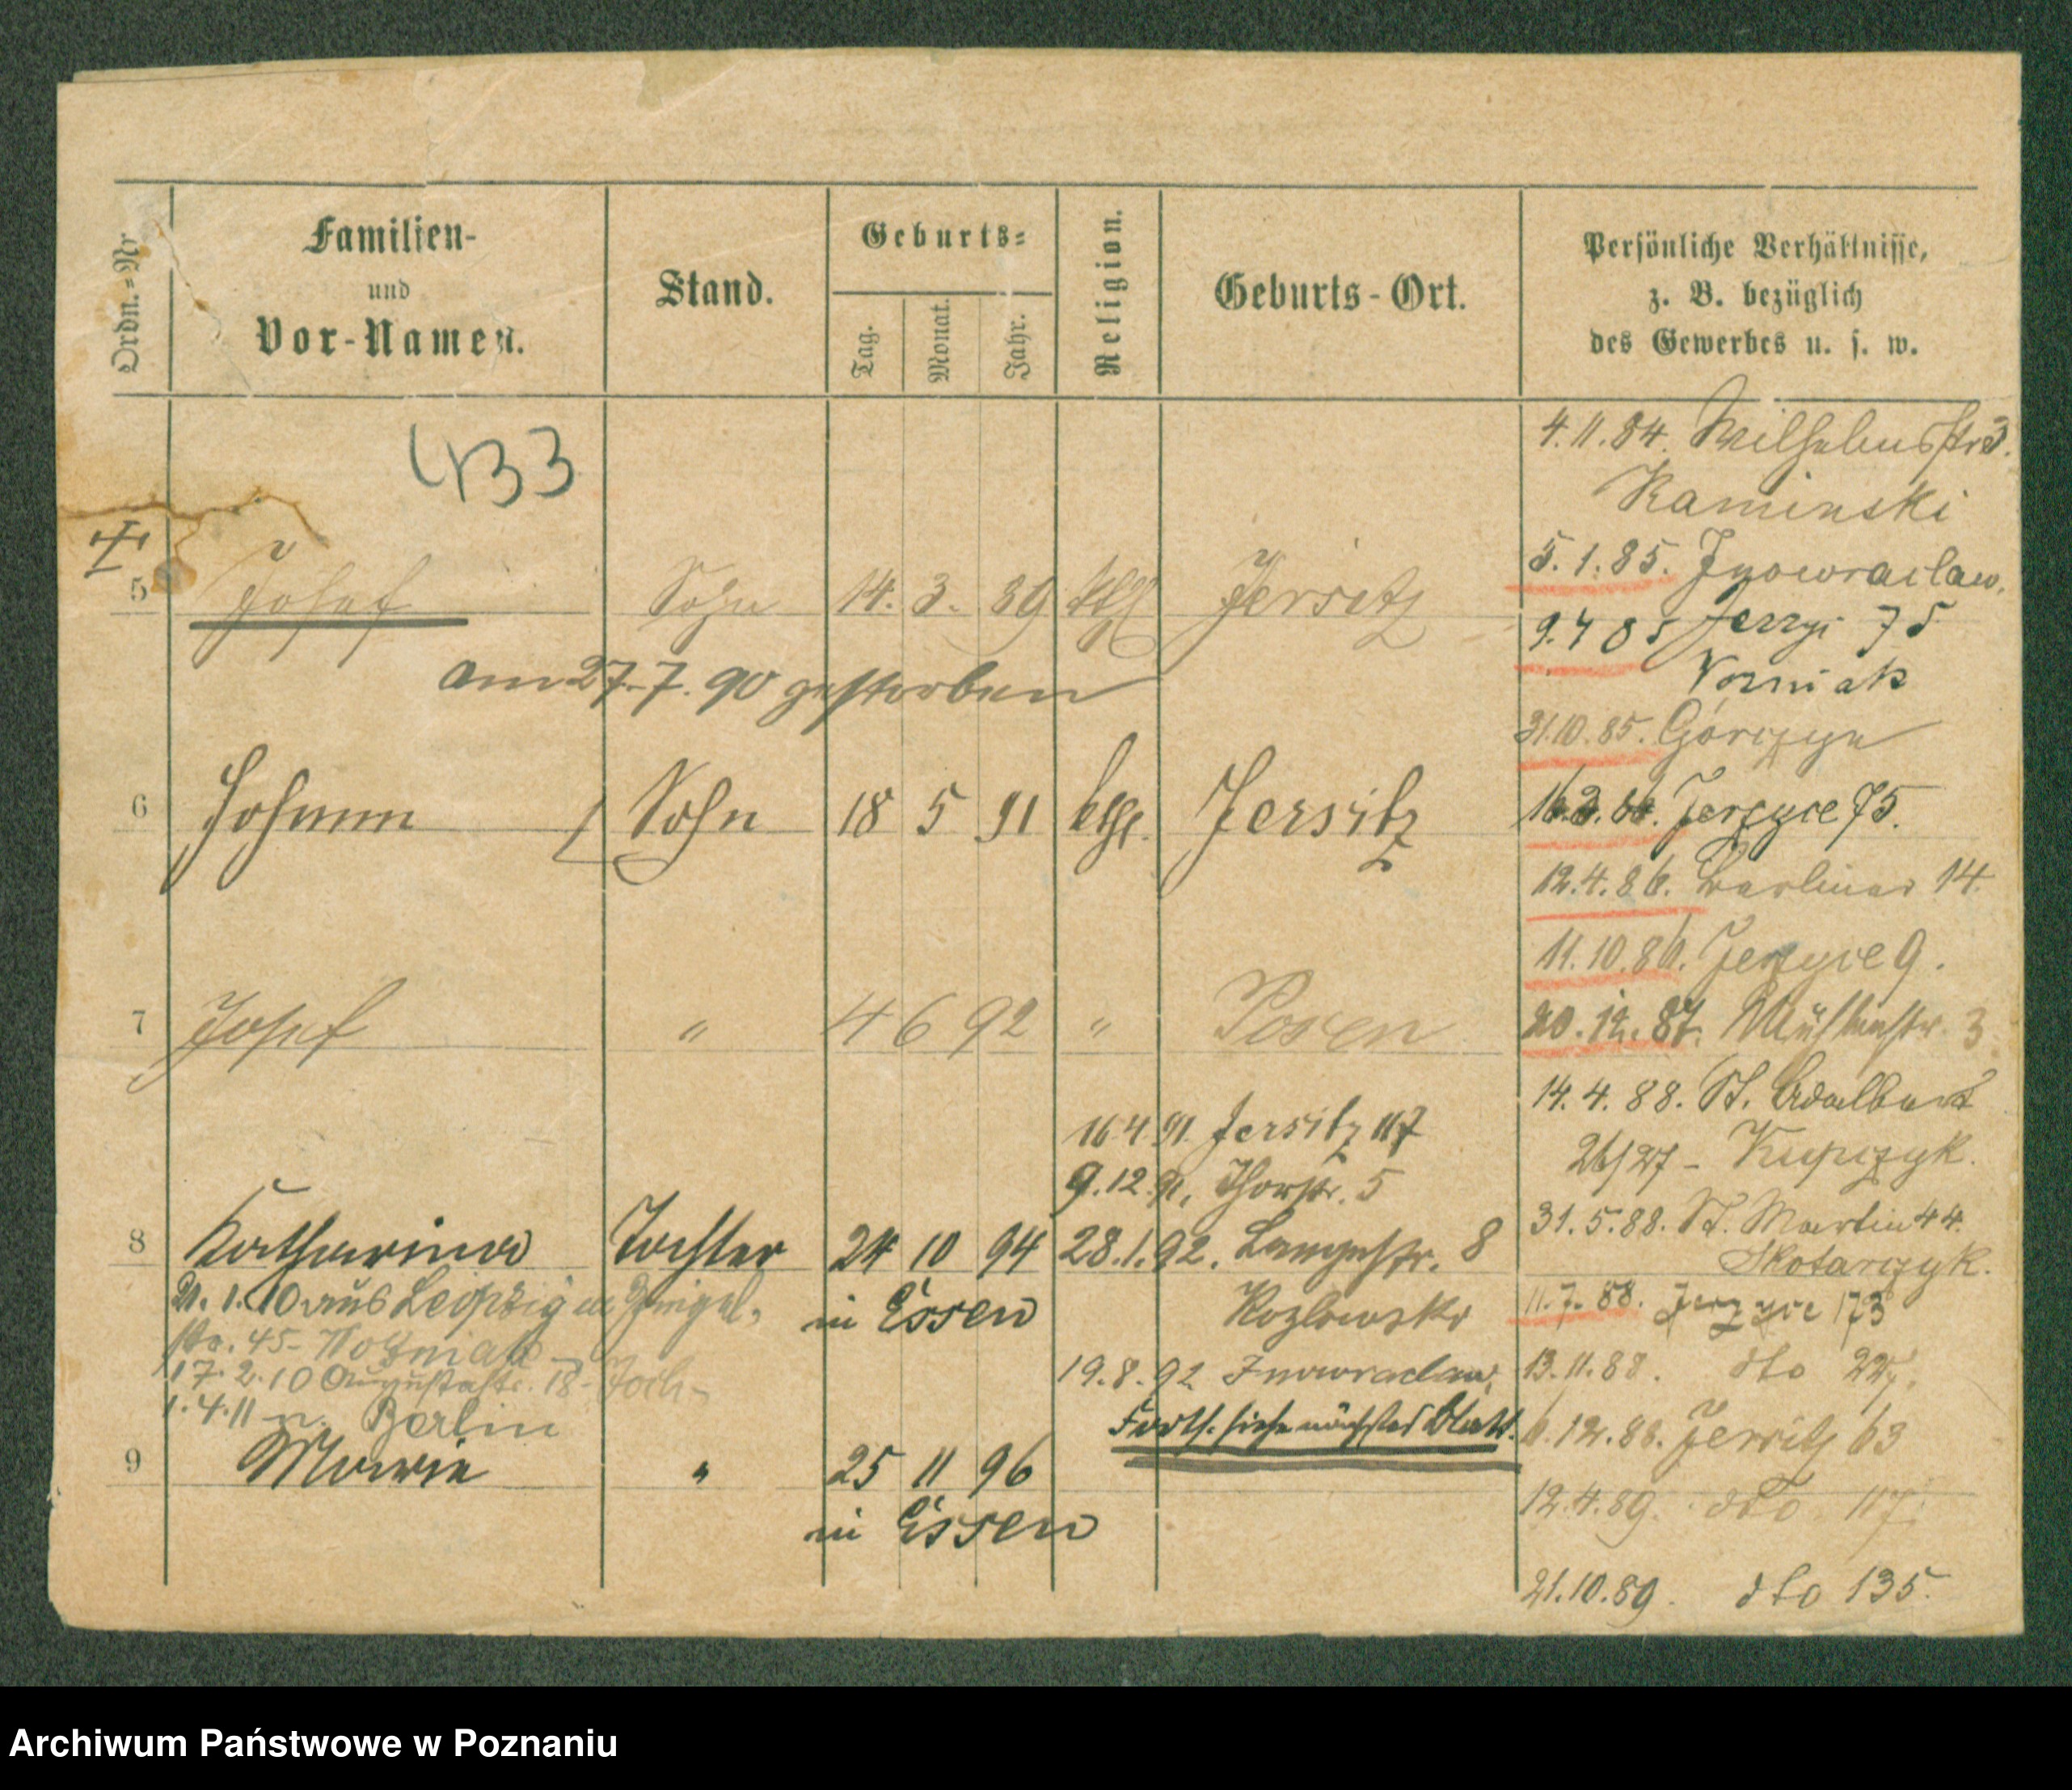 Ordn.-Nr
Familien-
und
Vor-Namen.
Stand.
Geburts-
Tag.
Monat.
Jahr.
Religion.
Geburts-Ort.
Persönliche Verhältnisse,
z. B. bezüglich
des Gewerbes u. s. w.
433
5 Josef Sohn 14. 3. 89 ktl Jersitz
am 27.7.90 gestorben
6 Johann Sohn 18 5 91 kth. Jersitz
7 Josef " 4 6 92 " Posen
16.4.91. Jersitz 117
9.12.91. Thorstr. 5
8 Katharina Tochter 24 10 94
28.1.92. Langestr. 8
Kozlowski
in Essen
21.1.10 aus Leipzig
str. 45- Wozniak
17.2.10 Augustastr. 18-
1.4.11 n. Berlin
19.8.92 Inowraclaw,
Forts. siehe nächstes Blatt.
9 Marie " 25 11 96
in Essen
4.11.84. Wilhelmsstr 3.
Kaminski
5.1.85. Inowraclaw.
9.4 85 75
Wozniak
31.10.85. Górczyn
Jerzyce 75.
12.4.86. Berliner 14.
11.10.86. Jerzyce 9.
20.12.87. Mühlenstr. 3
14.4.88. St. Adalbert
26/27 - Kupczyk.
31.5.88. St. Martin 44.
Skotarczyk.
11.7.88. Jerzyce 173
13.11.88. dto 227.
6.12.88. Jersitz 63
12.4.89. dto 117.
21.10.89. dto 135.
Archiwum Państwowe w Poznaniu